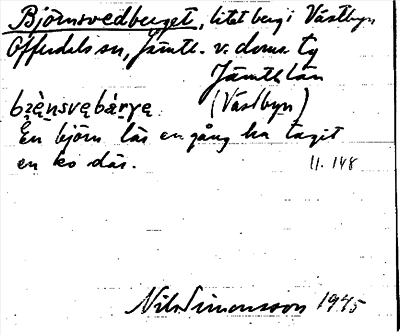 Björnsvedberget, litet berg i Västbyn
Offerdals sn, Jämtl. v. doms. tg
Jämtl. län
(Västbyn)
En björn lär en gång ha taget
en ko där.
11.148
Nils Simonsson 1945